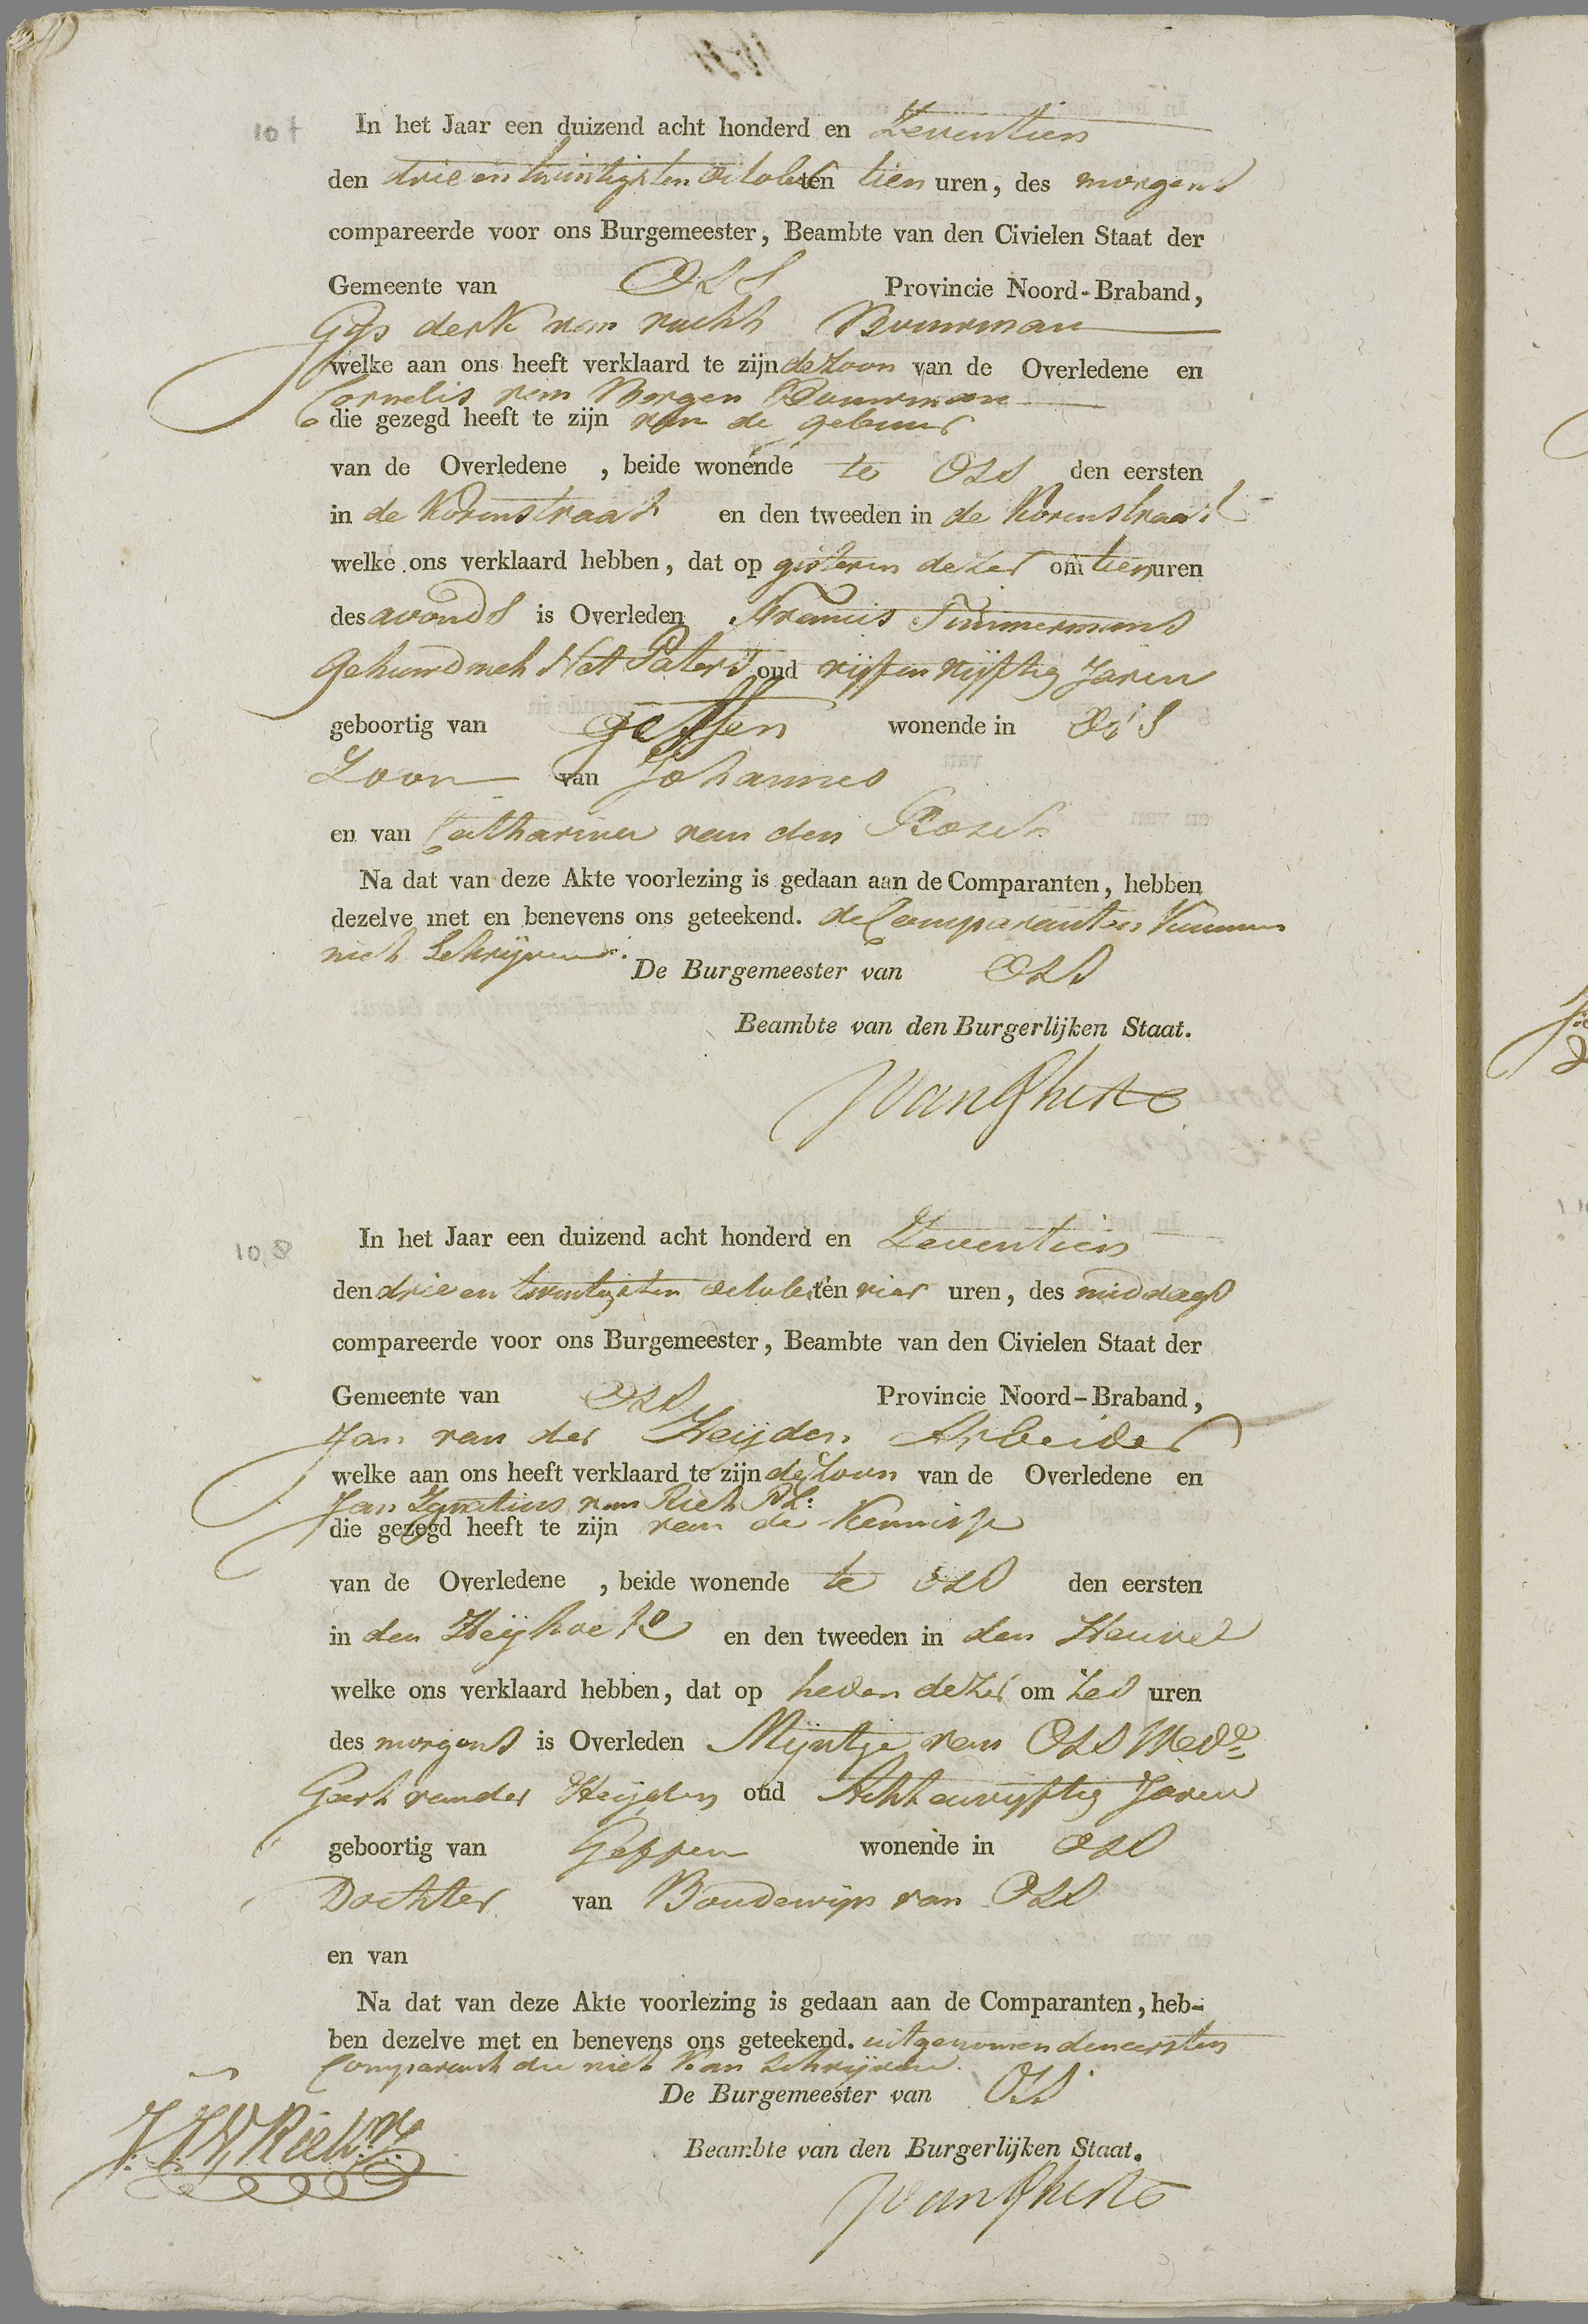 107
In het Jaar een duizend acht honderd en Zeventien
den drie en twintigsten October ten tien uren, des morgens
compareerde voor ons Burgemeester, Beambte van den Civielen Staat der
Gemeente van Oss Provincie Noord-Braband,
Gijs derk van Bouwman
welke aan ons heeft verklaard te zijn de Zoon van de Overledene en
Cornelis van Bergen Bouwman
die gezegd heeft te zijn van de gebuur
van de Overledene , beide wonende te Oss den eersten
in de Korenstraat en den tweeden in de Korenstraat
welke ons verklaard hebben, dat op gisteren dezer om tien uren
des avonds is Overleden Francis Timmermans
Gehuwd met Peters oud vijf en vijftig Jaren
geboortig van geffen wonende in Oss
Zoon van Johannes
en van Catharina van den Bosch
Na dat van deze Akte voorlezing is gedaan aan de Comparanten, hebben
dezelve met en benevens ons geteekend. de Comparanten kunnen
niet Schrijven.
De Burgemeester van Oss
Beambte van den Burgerlijken Staat.
108
In het Jaar een duizend acht honderd en Zeventien
den drie en twintigsten october ten vier uren, des middags
compareerde voor ons Burgemeester, Beambte van den Civielen Staat der
Gemeente van Oss Provincie Noord-Braband,
Jan van der Heijden Arbeider
welke aan ons heeft verklaard te zijn de Zoon van de Overledene en
Jan Ignatius van Rieh
die gezegd heeft te zijn van de Kennisse
van de Overledene , beide wonende te Oss den eersten
in den Heijhoek en den tweeden in den Heuvel
welke ons verklaard hebben, dat op heden dezer om zes uren
des morgens is Overleden Mijntje van Oss Wede
Gert van der Heijden oud Acht en vijftig Jaren
geboortig van Geffen wonende in Oss
Dochter van Boudewijn van Oss
en van
Na dat van deze Akte voorlezing is gedaan aan de Comparanten, heb-
ben dezelve met en benevens ons geteekend. uitgenomen den eersten
Comparant die niet kan Schrijven
De Burgemeester van Oss
Beambte van den Burgerlijken Staat.